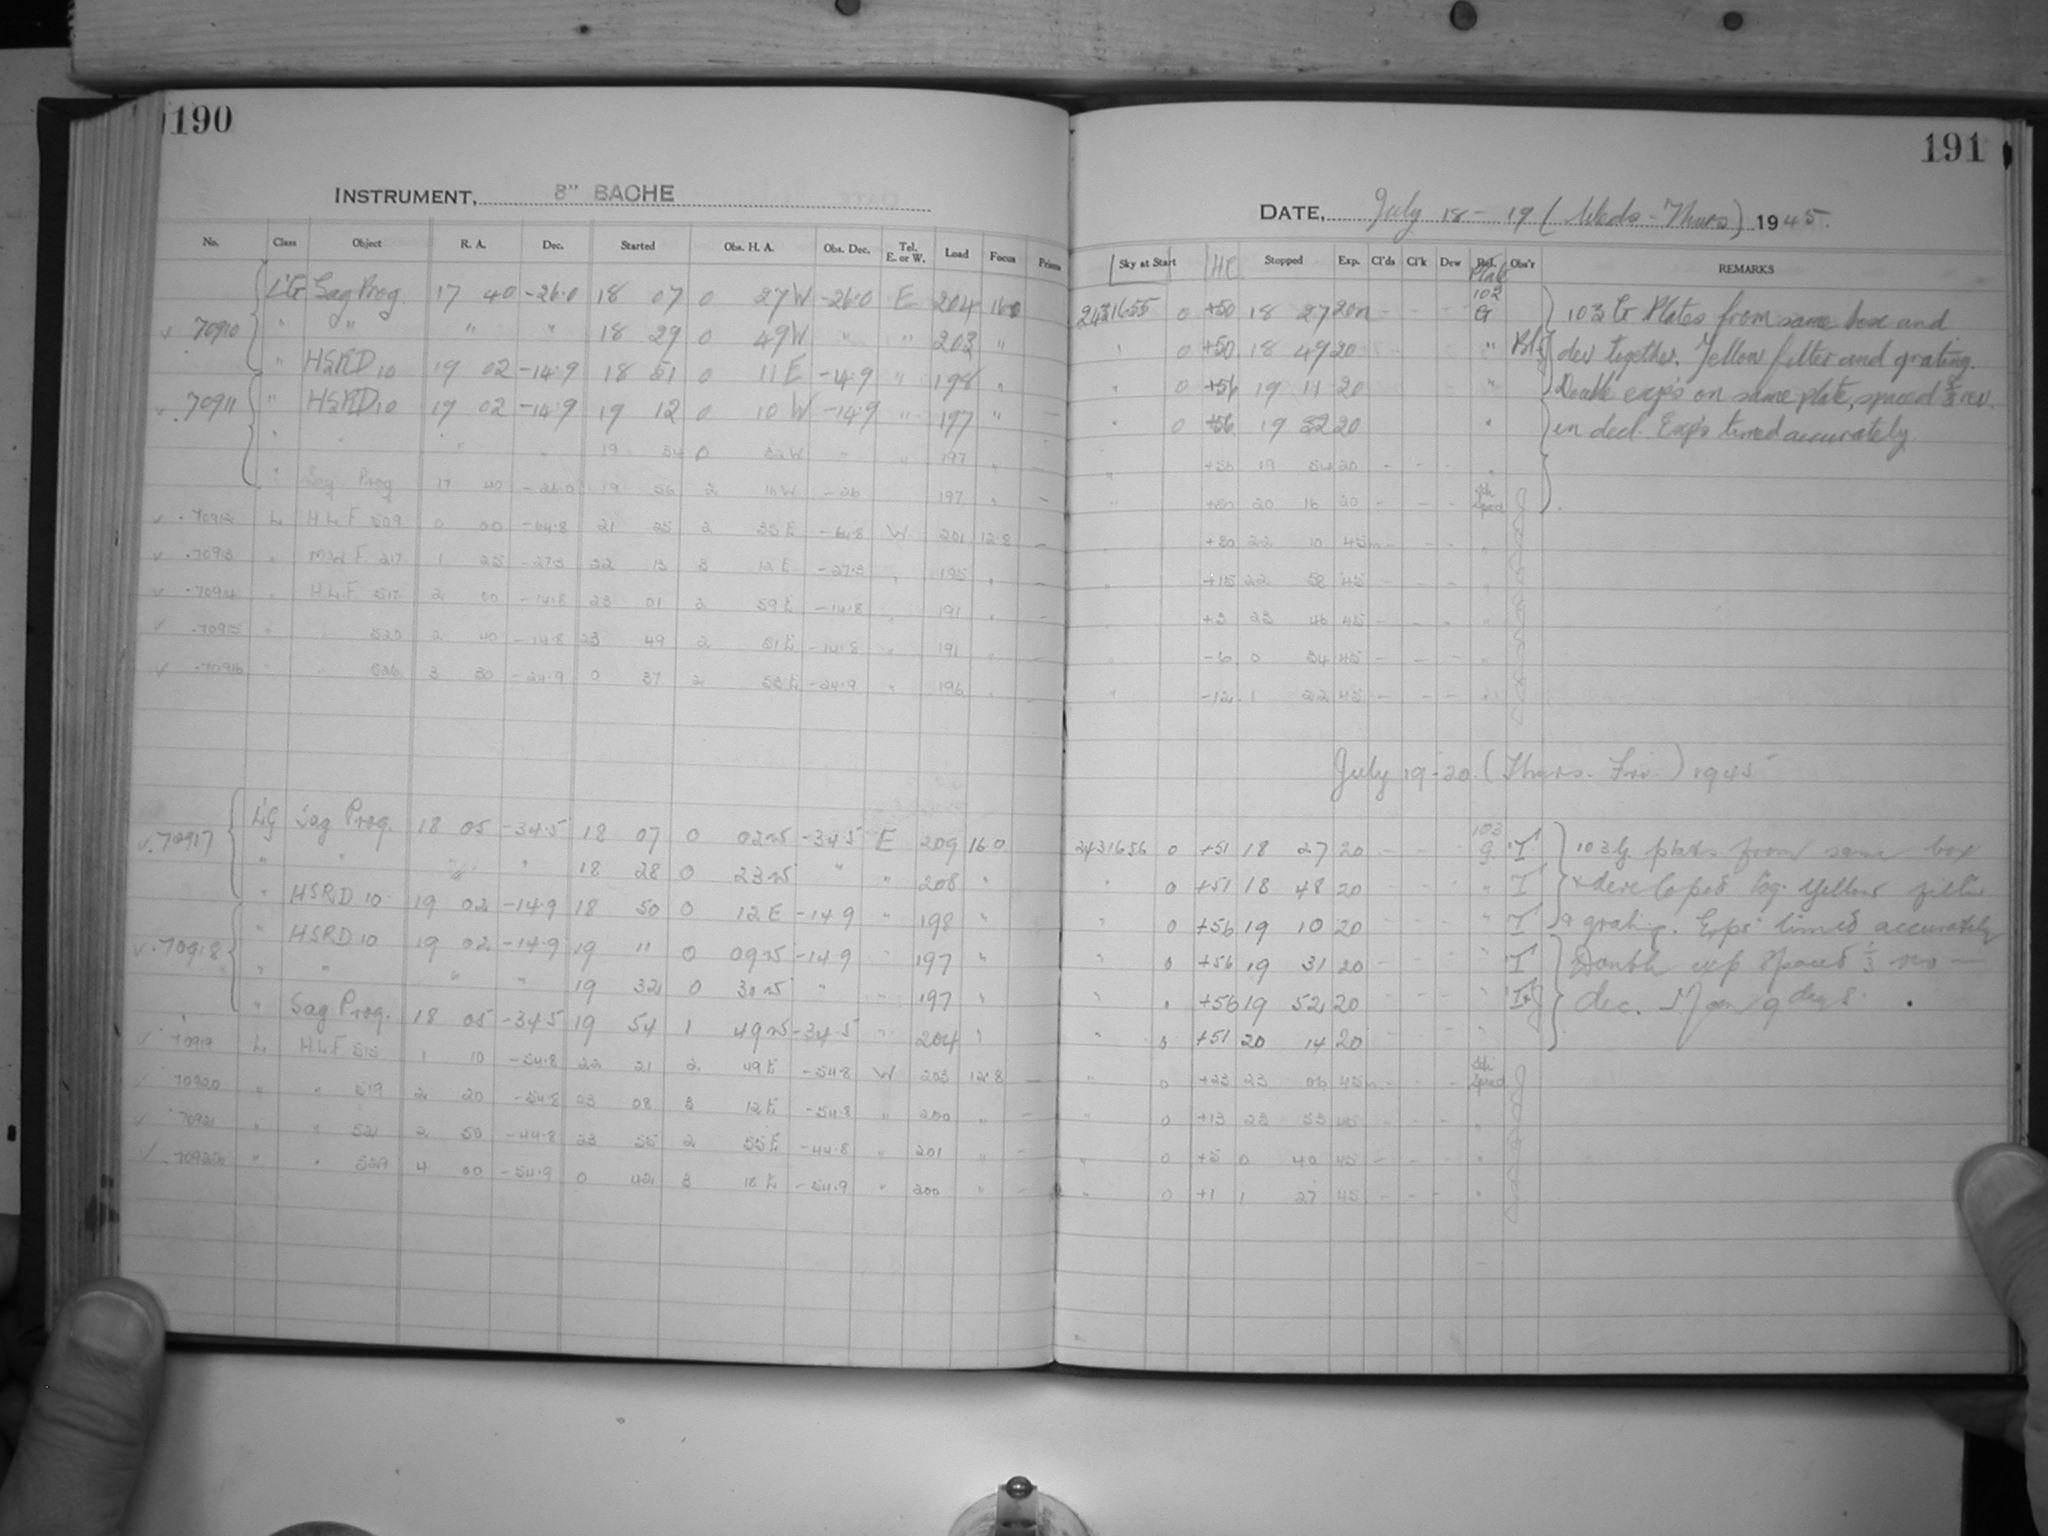 190
191
INSTRUMENT, 8" BACHE
DATE, July 18 - 19 (Weds - Thurs) 1945.
No. Class Object R. A. Dec. Started Obs. H. A. Obs. Dec. Tel. E. or W. Load Focus
Sky at Start HC Stopped Exp. Cl'ds Cl'k Dew Plate Obs'r REMARKS
L'G Sag Prog 17 40 -26.0 18 07 0 27W -26.0 E 204 16.0 2431655 0 +50 18 27 20m - - - G 103 G Plates from same box and
70910 " " " " 18 29 0 49W " " 203 " " 0 +50 18 49 20 " dev together. Yellow filter and grating.
" HSRD 10 19 02 -14.9 18 51 0 11E -14.9 " 198 " " 0 +56 19 11 20 " Double exp's on same plate, spaced 1/3 rev.
70911 " HSRD 10 19 02 -14.9 19 12 0 10W -14.9 " 197 " " 0 +56 19 32 20 " in decl. Exp's timed accurately
" " " " 19 34 0 32W " " 197 " " +56 19 54 20 - - - "
" Sag Prog 17 40 -26.0 19 56 2 16W -26 197 " " +50 20 16 20 - - -
70912 L HLF 509 0 00 -64.8 21 25 2 35E -64.8 W 201 12.8 - +80 22 10 45m - - - "
70913 " MWF 217 1 25 -27.3 22 13 3 12E -27.3 " 195 " - " +15 22 58 45 - - - "
70914 " HLF 517 2 00 -14.8 23 01 2 59E -14.8 " 191 " - +3 23 46 45 - - - "
70915 " " 520 2 40 -14.8 23 49 2 51E -14.8 " 191 " - " -6 0 34 45 - - - "
70916 " " 526 3 30 -24.9 0 37 2 53E -24.9 " 196 " - " -12 1 22 45 - - - "
July 19-20 (Thurs. Fri.) 1945
70917 L'G Sag Prog. 18 05 -34.5 18 07 0 02W -34.5 E 209 16.0 2431656 0 +51 18 27 20 - - - 103 G T 103G plates from same box
" " " " 18 28 0 23W " " 208 " " 0 +51 18 48 20 " T & developed tog. Yellow filter
" HSRD 10 19 02 -14.9 18 50 0 12E -14.9 " 198 " " 0 +56 19 10 20 " T & grating. Exps timed accurately
70918 " HSRD 10 19 02 -14.9 19 11 0 09W -14.9 " 197 " " 0 +56 19 31 20 " T Double exp spaced 1/3 rev
" " " " 19 32 0 30W " " 197 " " " +56 19 52 20 " dec. Moon 9 days.
" Sag Prog. 18 05 -34.5 19 54 1 49W -34.5 " 204 " " 0 +51 20 14 20 "
70919 L HLF 515 1 10 -54.8 22 21 2 49E -54.8 W 203 12.8 - " 0 +23 23 06 45m - - -
70920 " " 519 2 20 -54.8 23 08 3 12E -54.8 " 200 " - " 0 +13 23 53 45 - - - "
70921 " " 521 2 50 -44.8 23 55 2 55E -44.8 " 201 " - " 0 +5 0 40 45 - - - "
70922 " " 529 4 00 -54.9 0 42 3 18E -54.9 " 200 " - " 0 +1 1 27 45 - - - "